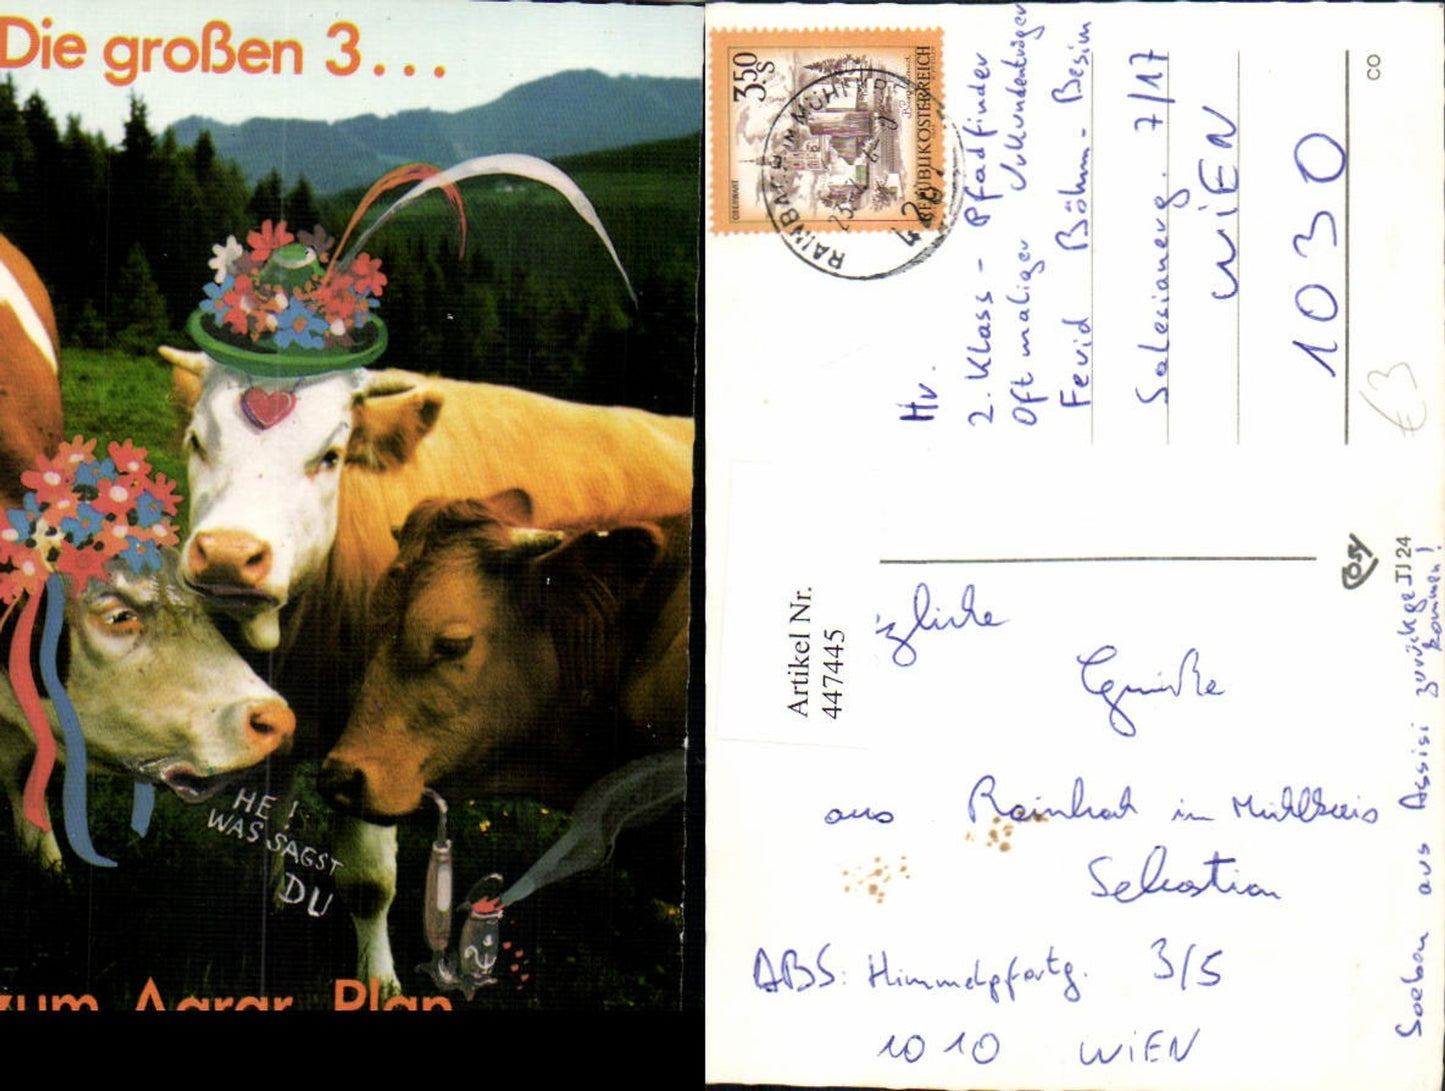 Die großen 3...
HE !
WAS SAGST
DU
zum Agrar-Plan
3.50
S
REPUBLIK ÖSTERREICH
OBERWART
RAINBACH IM MÜHLKR
Hr.
2. Klass - Pfadfinder
Oftmaliger Urkundenträger
Ferid Böhm - Besim
Salesianerg. 7/17
WIEN
1030
€3
CO
Artikel Nr.
447445
zliche
Grüße
aus Rainbach im Mühlkreis
Sebastian
ABS: Himmelpfortg. 3/5
1010 WIEN
Soeben aus Assisi zurückge-
kommen!
IJ 24